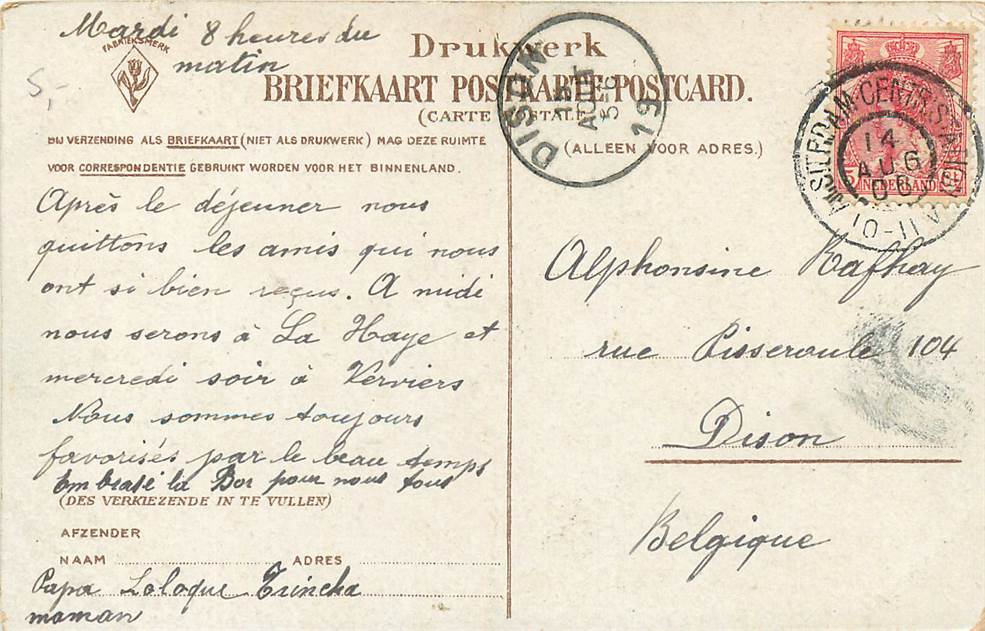 Mardi 8 heures du
matin
FABRIEKSMERK
5,-
Drukwerk
BRIEFKAART POSTKARTE POSTCARD.
(CARTE POSTALE)
BIJ VERZENDING ALS BRIEFKAART (NIET ALS DRUKWERK) MAG DEZE RUIMTE
VOOR CORRESPONDENTIE GEBRUIKT WORDEN VOOR HET BINNENLAND.
(ALLEEN VOOR ADRES.)
DISON
15
AOUT
5-6
19
AMSTERDAM CENTR. STATION
14
AUG
06
10-11 V
NEDERLAND
Après le déjeuner nous
quittons les amis qui nous
ont si bien reçus. A midi
nous serons à La Haye et
mercredi soir à Verviers
Nous sommes toujours
favorisés par le beau temps
Embrasé la Bor pour nous tous
(DES VERKIEZENDE IN TE VULLEN)
AFZENDER
NAAM ADRES
Papa Loloque Trincha
maman
Alphonsine
rue Pisseroule 104
Dison
Belgique